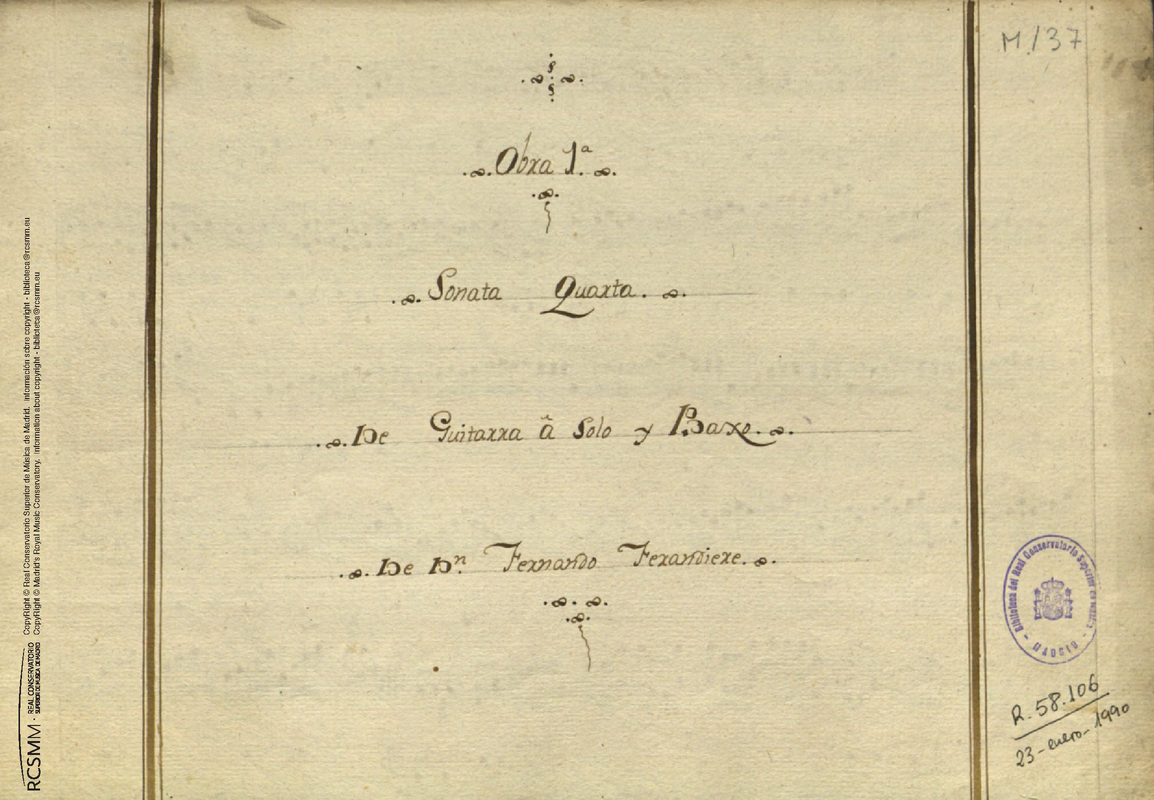 M/37
Obra 1ª
Sonata Quarta.
De Guitarra â Solo y Baxo.
De Dn. Fernando Ferandiere.
Biblioteca del Real Conservatorio Superior de Música
MADRID
R. 58.106
23-enero-1990
CopyRight © Real Conservatorio Superior de Música de Madrid. Información sobre copyright - biblioteca@rcsmm.eu
CopyRight © Madrid's Royal Music Conservatory. Information about copyright - biblioteca@rcsmm.eu
RCSMM · REAL CONSERVATORIO
SUPERIOR DE MÚSICA DE MADRID